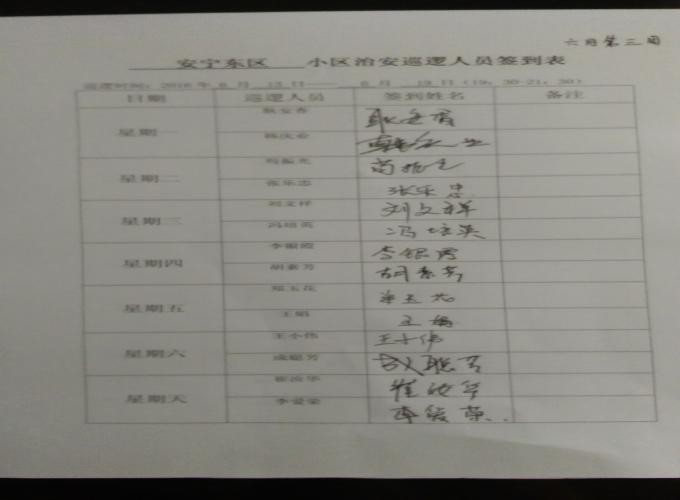 六月第三周
安宁东区 小区治安巡逻人员签到表
巡逻时间：2016年6月13日——6月19日（19：30-21：30）
日期 巡逻人员 签到姓名 备注
星期一
韩庆
星期二
张乐忠 张乐忠
星期三 刘文祥 刘文祥
冯培英 冯培英
星期四 李银霞 李银霞
胡素芳 胡素芳
星期五 玉花
王娟 王娟
星期六 王小伟 王小伟
成聪芳 聪芳
星期天 崔改华 崔改华
李爱荣 李爱荣